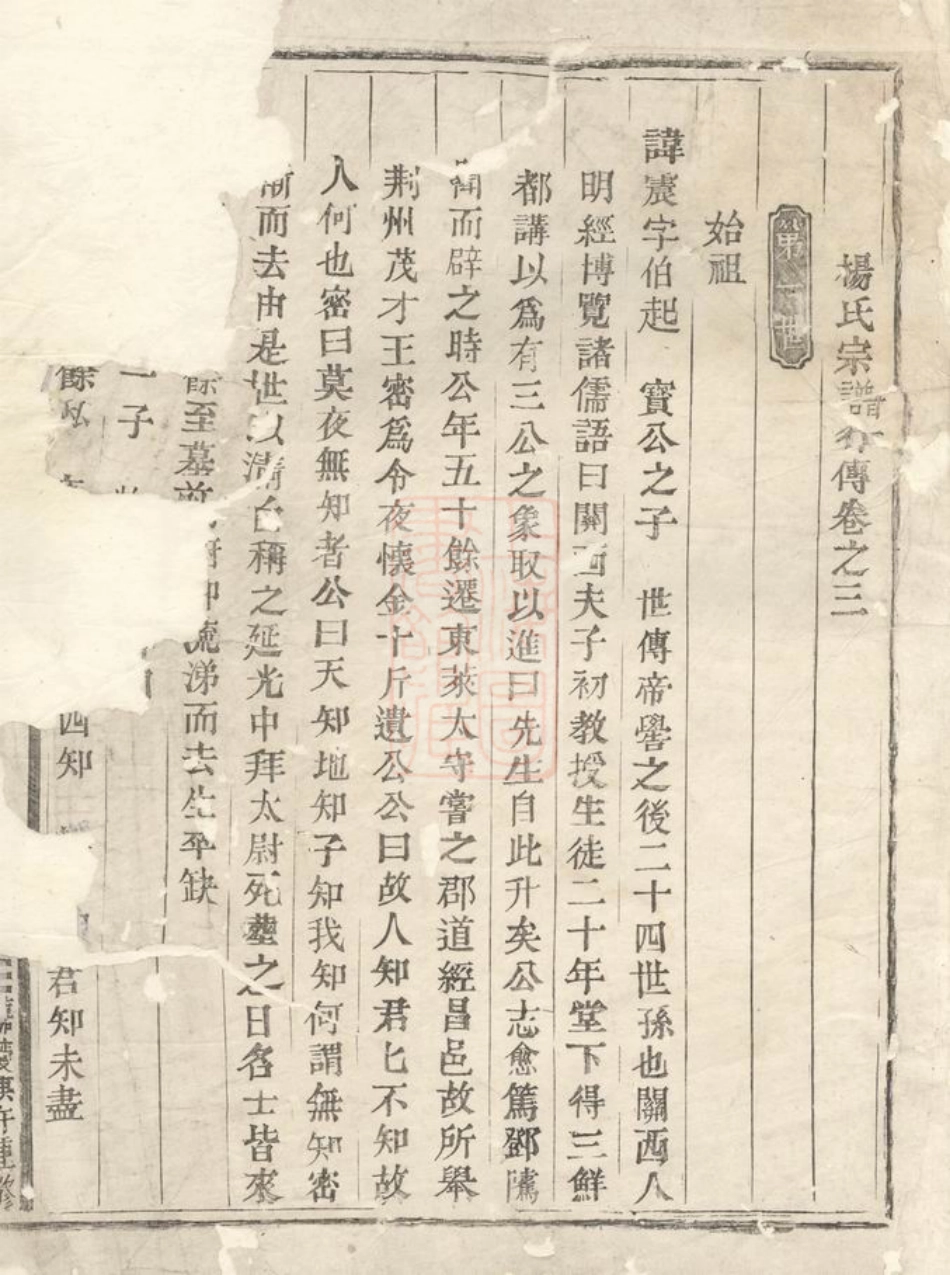 楊氏宗譜
傳卷之三
第一世
始祖
諱震字伯起 寶公之子 世傳帝嚳之後二十四世孫也關西人
明經博覽諸儒語曰關西夫子初教授生徒二十年堂下得三鮮
都講以爲有三公之象取以進曰先生自此升矣公志愈篤鄧隲
聞而辟之時公年五十餘遷東萊太守嘗之郡道經昌邑故所舉
荆州茂才王密爲令夜懷金十斤遺公公曰故人知君匕不知故
人何也密曰莫夜無知者公曰天知地知子知我知何謂無知密
慚而去由是世以清白稱之延光中拜太尉死塟之日名士皆來
餘至墓前
流涕而去生卒缺
一子
餘
四知
君知未盡
庚午重修